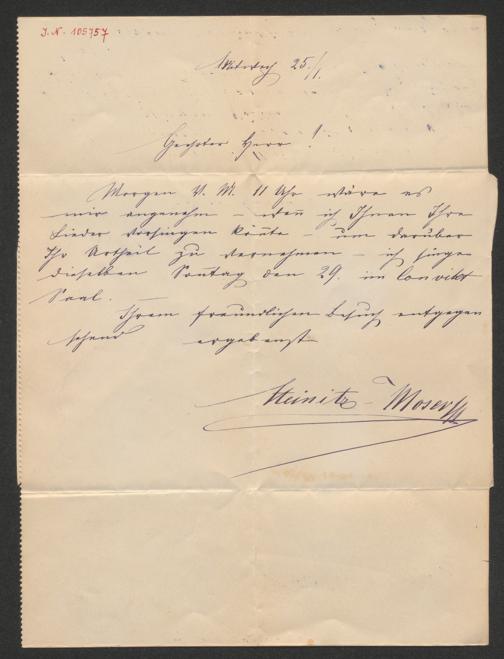 J. N. 105757
Mittwoch 25./1.
Geehrter Herr!
Morgen V. M. 11 Uhr wäre es
mir angenehm – wenn ich Ihnen Ihre
Lieder vorsingen könte – um darüber
Ihr Urtheil zu vernehmen – ich singe
dieselben Sontag den 29. im Convikt
Saal. —
Ihrem freundlichen Besuch entgegen
sehend ergebenst
Steinitz-Moser